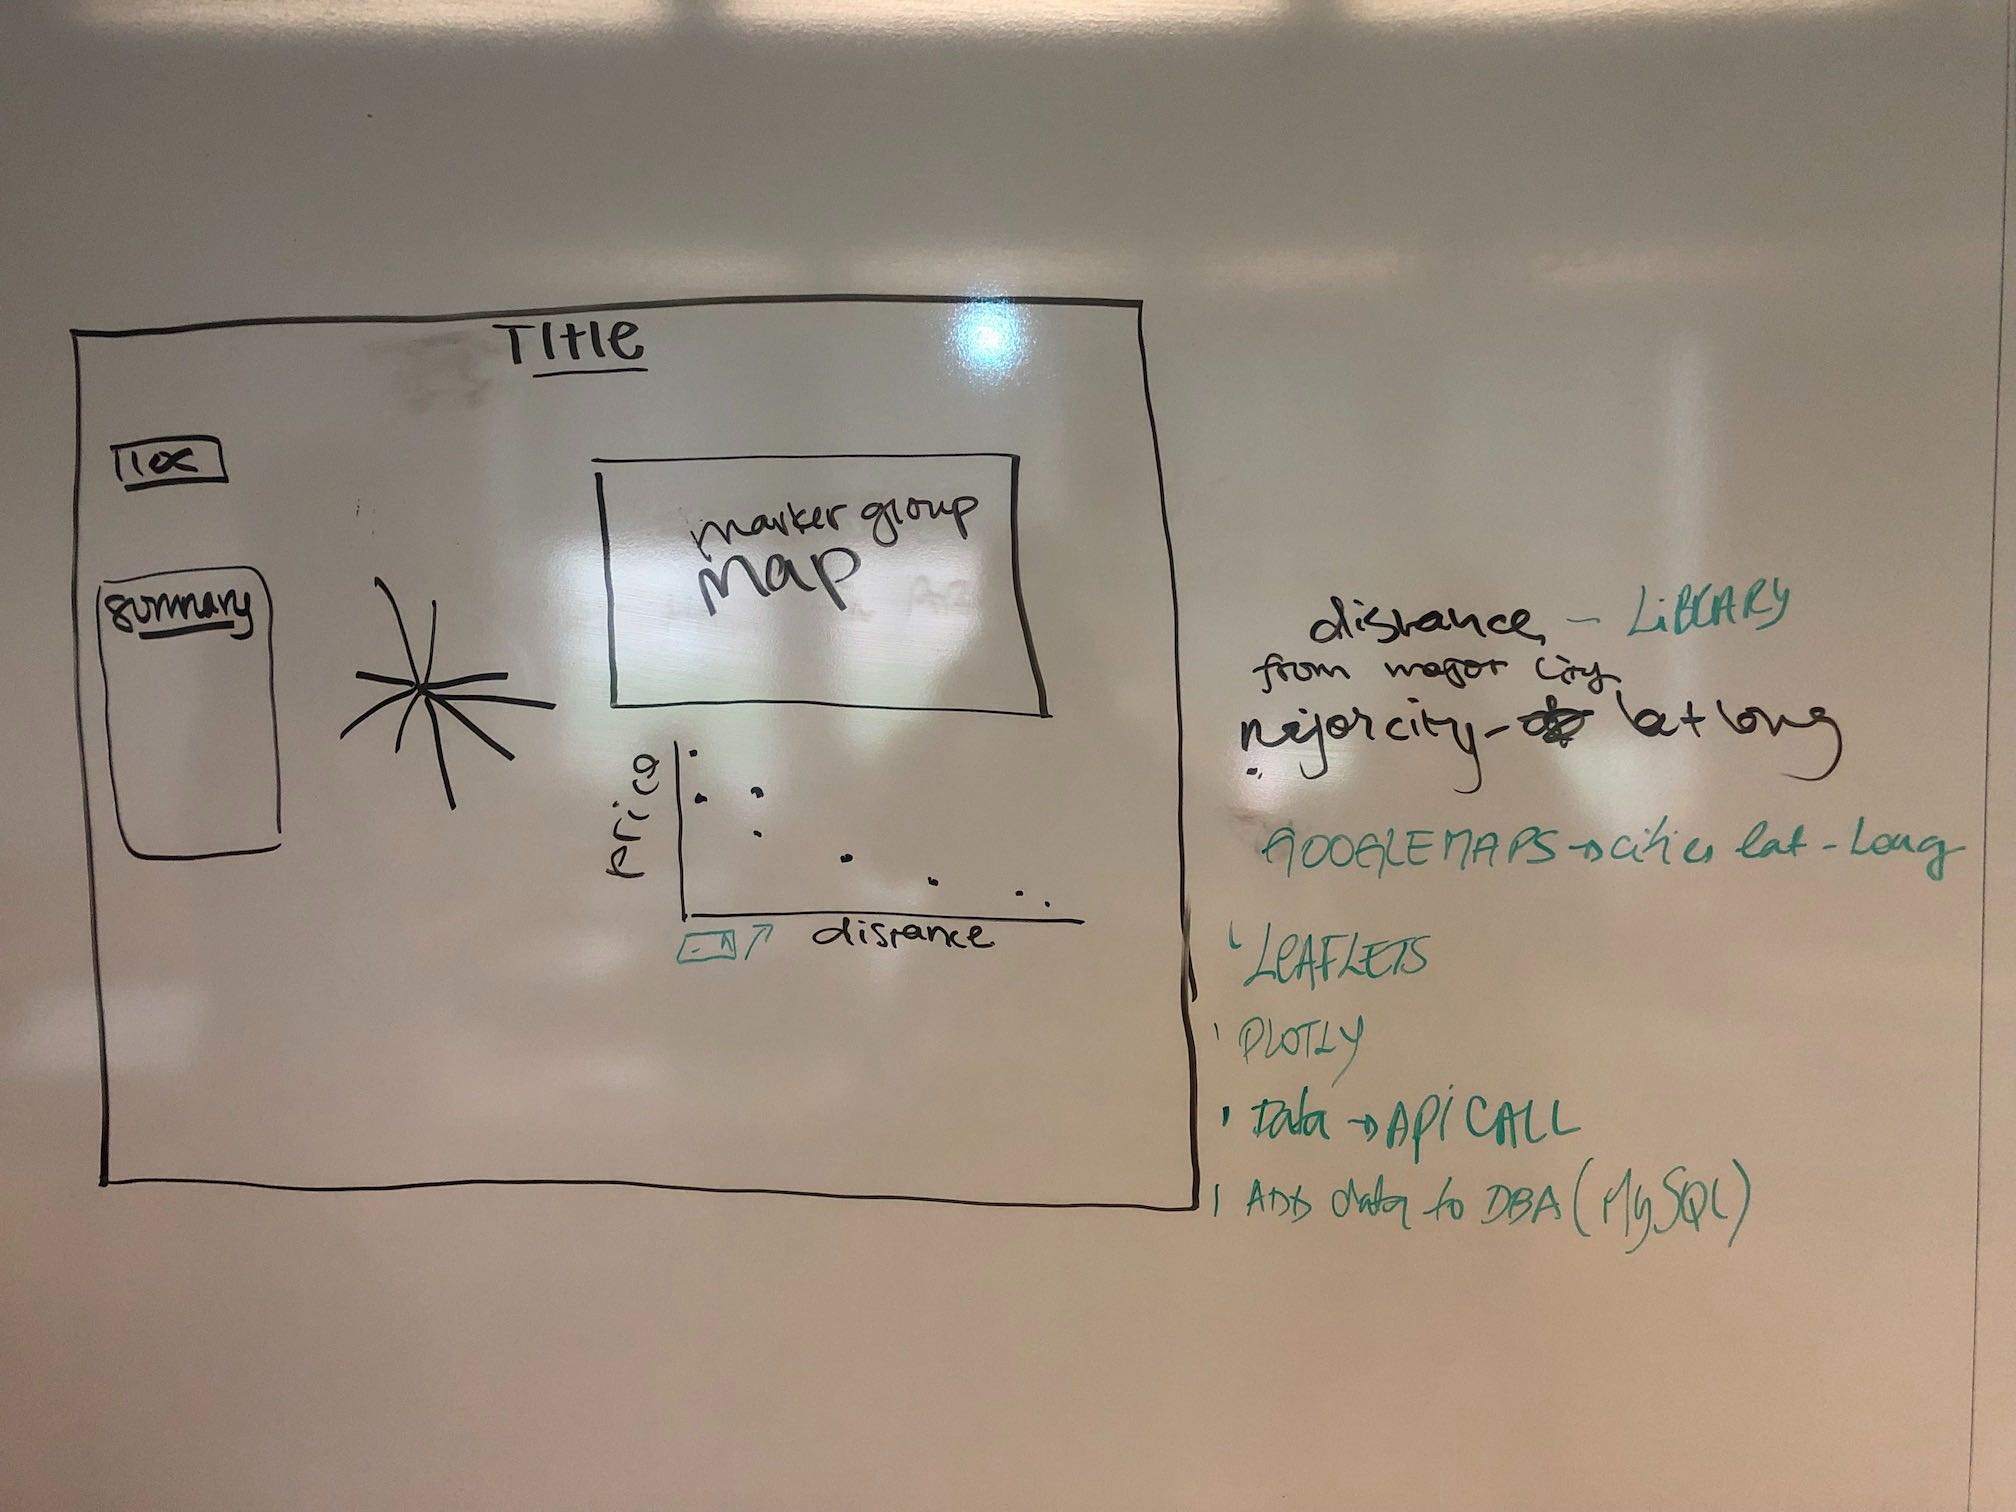 Title
summary
marker group
map
price
distance
distance - LIBRARY
from major city
major city - lat long
GOOGLE MAPS → cities lat - Long
LEAFLETS
PLOTLY
Data → API CALL
ADD data to DBA (MySQL)